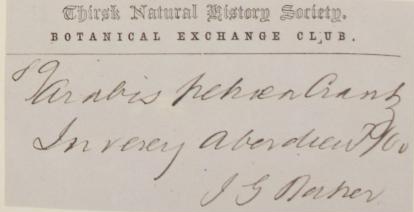 Thirsk Natural History Society.
BOTANICAL EXCHANGE CLUB.
Arabis petraea Crantz
Inverey Aberdeen
J G Baker